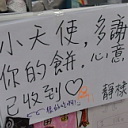 小天使，多謝
你的餅，心意
已收到♡
靜